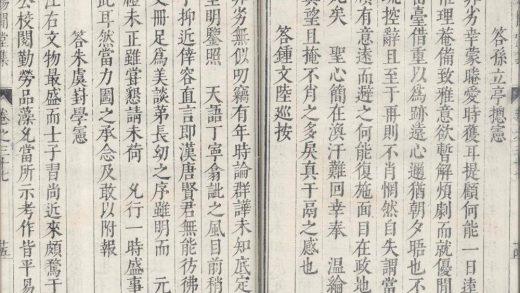 答孫立亭總憲
劣幸蒙曖愛時獲耳提顧何能一日逺
惟理菴備致雅意欲暫解煩劇而就優閒
留臺借重以為跡遠心邇猶朝夕晤也不
疏控辭且至于再則不肖惘然自失謂當
頗有意遠而避之何能復施面目在政地
死矣 聖心簡在渙汗難回幸奉 溫綸
望且掩不肖之多矣真干鬲之感也
答鍾文陸巡按
劣無似叨竊有年時論群譁未知底定
至明鑒照 天語丁寧翕訿之風目前稍
于抑近倖容直言即漢唐賢君無能彷彿
文冊足為美談第長幼之序雖明而 元
禮未正雖嘗懇請未荷 允行一時盛事
此耳然當力圖之承念及敢以附報
答朱虞葑學憲
江右文物最盛而士子習尚近來頗騖于
公校閱勤勞品藻允當所示考作皆平易
閒堂集
卷之三十七
十五